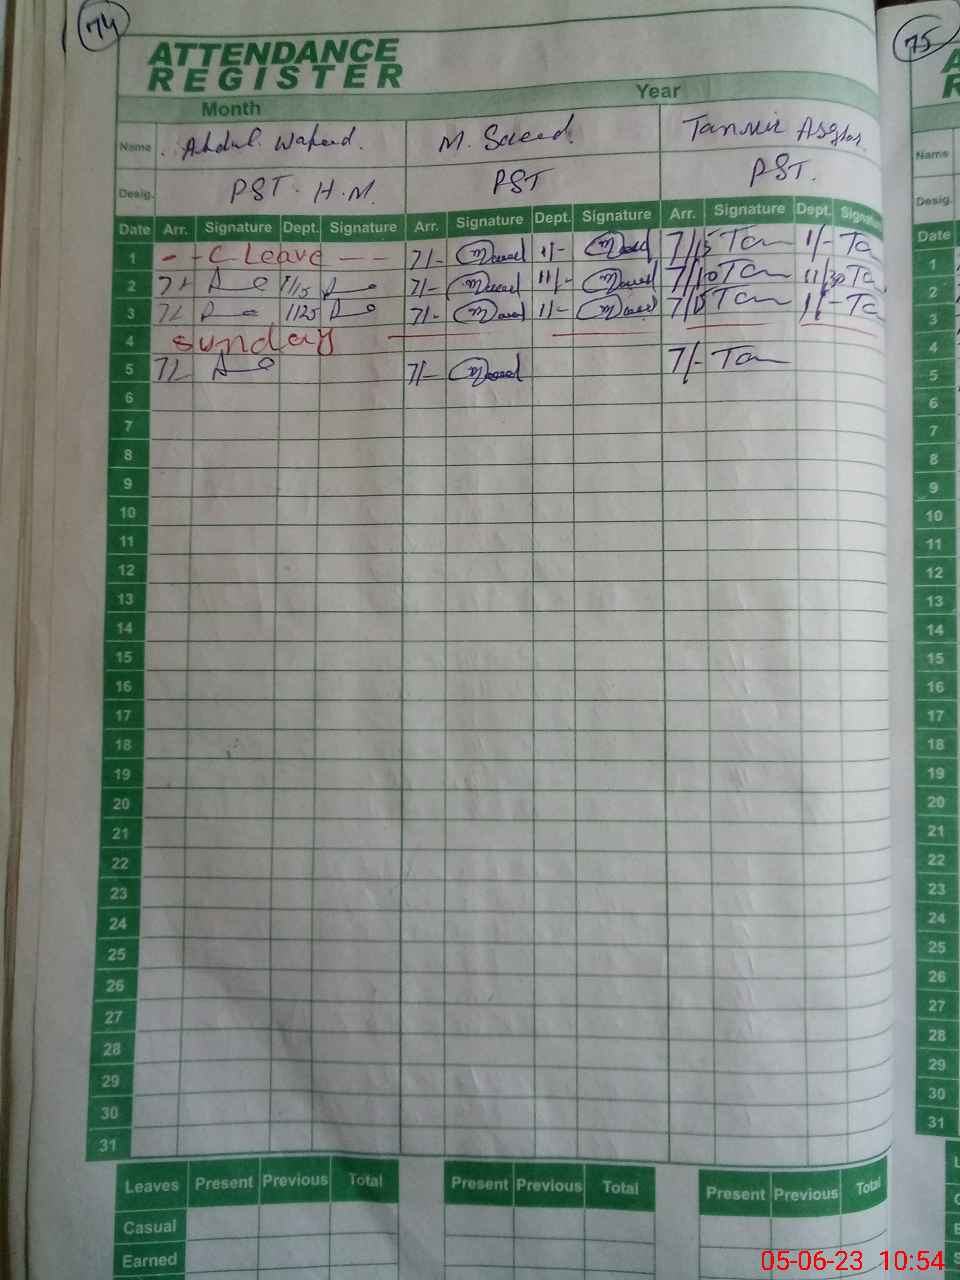 74
75
ATTENDANCE
REGISTER
Month Year
Name Abdul Waheed. M. Saeed. Tanvir Asghar
Name
Desig. PST. H.M. PST PST.
Desig.
Date Arr. Signature Dept. Signature Arr. Signature Dept. Signature Arr. Signature Dept. Signature
Date
1 - - C Leave - - 7/- 11/- 7/15 Tan 11/- Ta
1
2 7/- 7/- Saeed 11/- Saeed 7/10 Tan 11/30 Ta
2
3 7/- 1125 7/- Saeed 11/- Saeed 7/15 Tan 11/- Ta
3
4 Sunday
4
5 7/- 7/- Saeed 7/- Tan
5
6
6
7
7
8
8
9
9
10
10
11
11
12
12
13
13
14
14
15
15
16
16
17
17
18
18
19
19
20
20
21
21
22
22
23
23
24
24
25
25
26
26
27
27
28
28
29
29
30
30
31
31
Leaves Present Previous Total Present Previous Total Present Previous Total
Casual
Earned
05-06-23 10:54